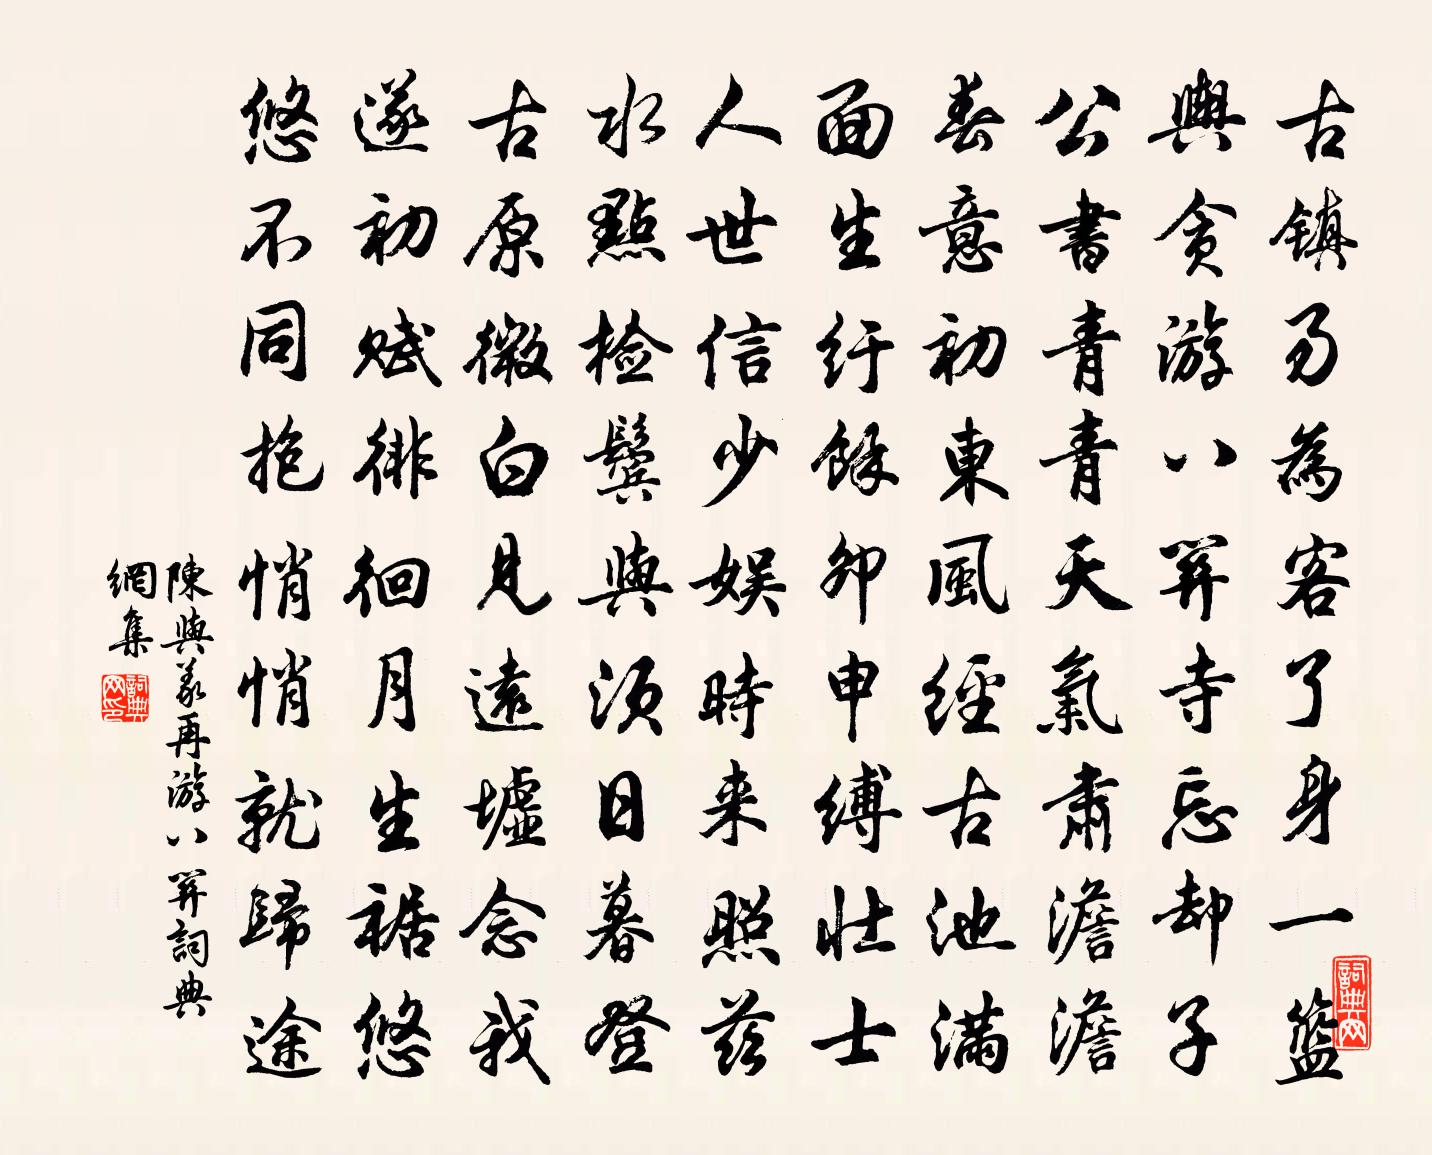 古镇易為客了身一籃
輿貪游八關寺忘却子
公書青青天氣肅澹澹
春意初東風經古池滿
面生紆餘卯申縛壮士
人世信少娱時来照兹
水點檢鬢與須日暮登
古原微白見遠墟念我
遂初賦徘徊月生裾悠
悠不同抱悄悄就歸途
陳與義再游八關詞典
網集
詞典网
詞典网